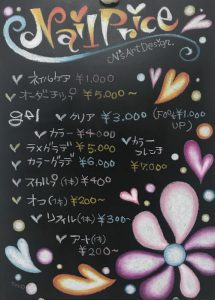 Nail Price
N's Art Design
ネイルケア ¥1.000
オーダーチップ ¥5.000~
gel
クリア ¥3.000 (Foot¥1.000 UP)
カラー ¥4000
ラメグラデ ¥5.000
カラーグラデ ¥6.000
カラーフレンチ ¥7.000
スカルプ(1本) ¥400
オフ(1本) ¥200~
リフィル(1本) ¥300~
アート(1本)
¥200~